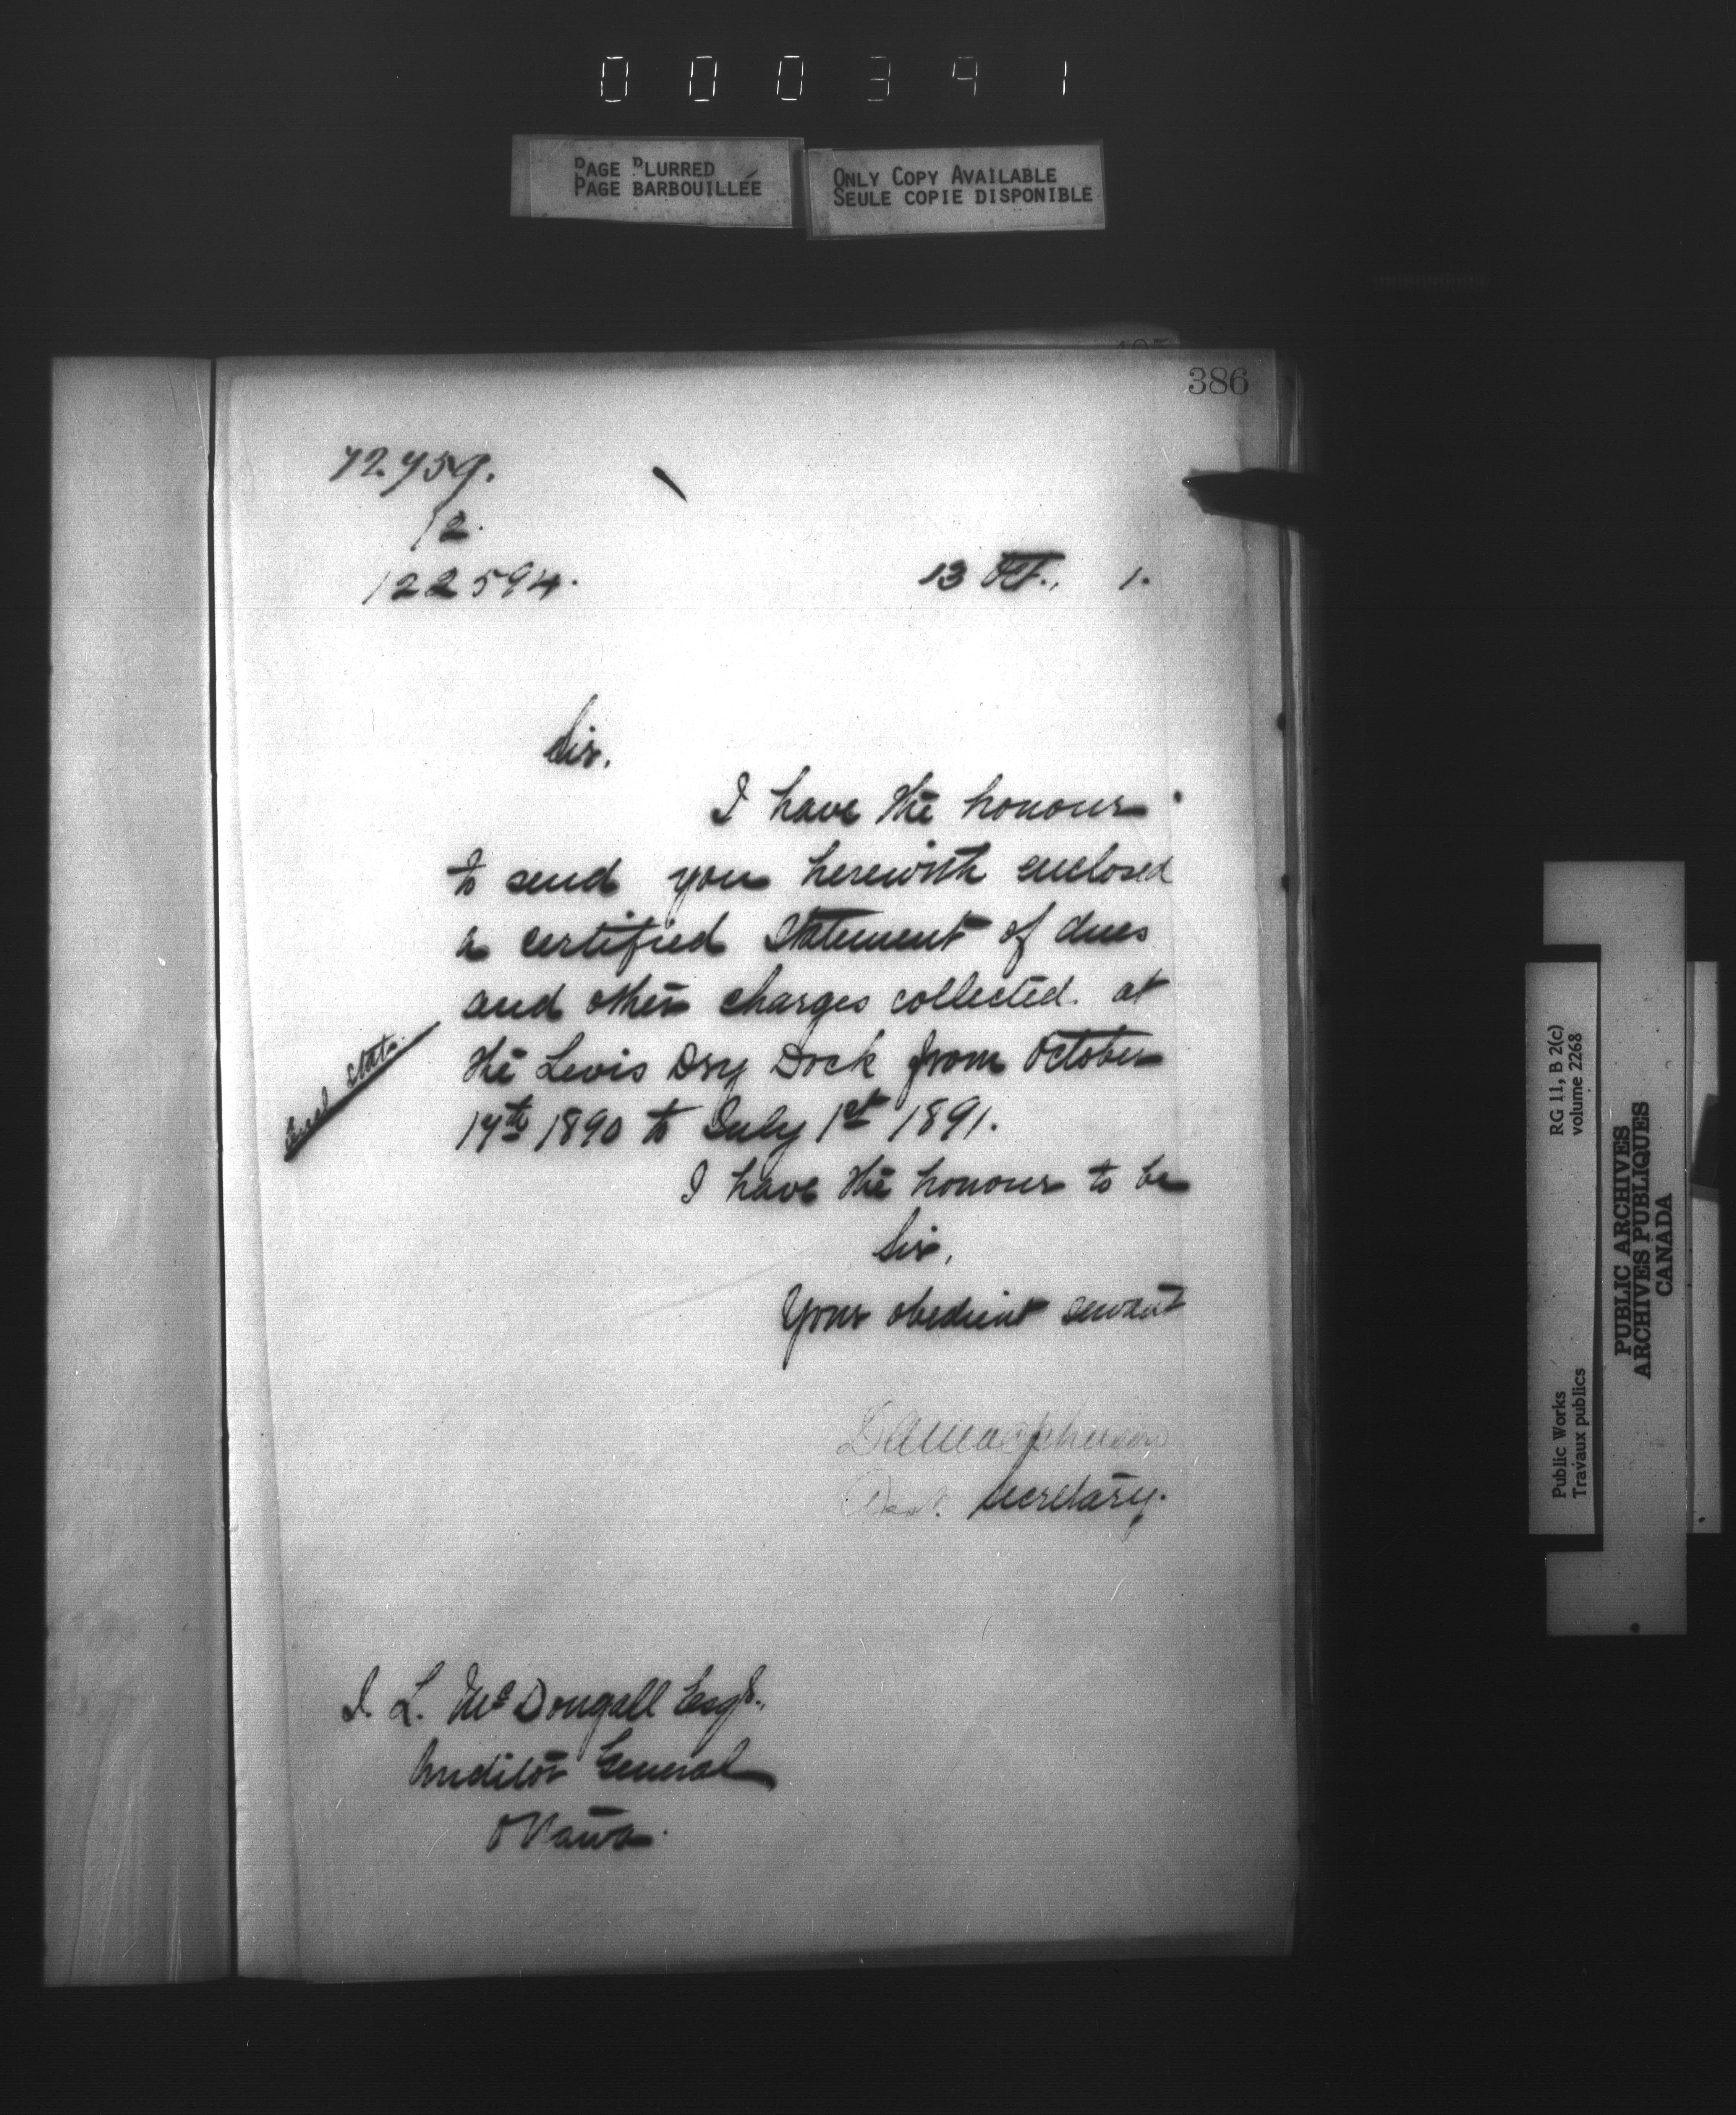 000391
PAGE BLURRED
PAGE BARBOUILLÉE
ONLY COPY AVAILABLE
SEULE COPIE DISPONIBLE
386
72.759.
12.
122594.
13 Oct., 1.
Sir,
I have the honour
to send you herewith enclosed
a certified Statement of dues
and other charges collected. at
the Levis Dry Dock from October
17th 1890 to July 1st 1891.
I have the honour to be
Sir,
Your obedient servant
Secretary.
J. L. McDougall Esqr.,
Auditor General
Ottawa.
RG 11, B 2(c)
volume 2268
Public Works
Travaux publics
PUBLIC ARCHIVES
ARCHIVES PUBLIQUES
CANADA